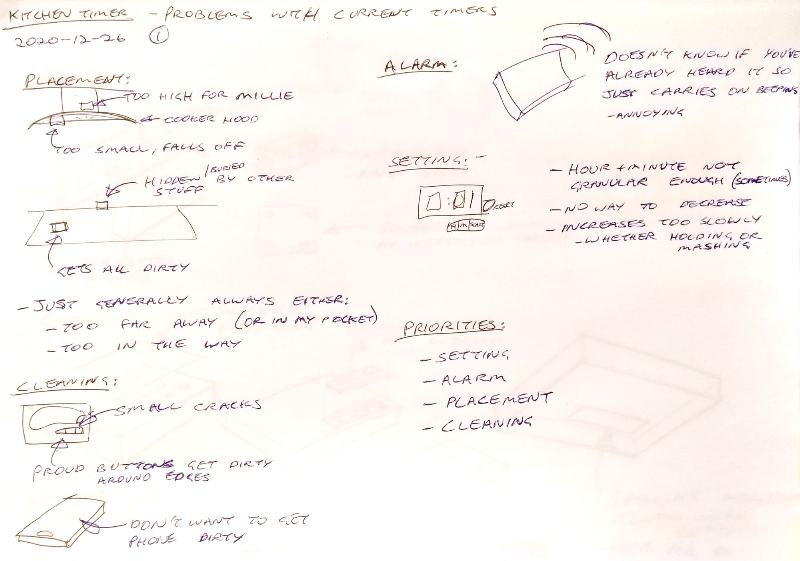 KITCHEN TIMER - PROBLEMS WITH CURRENT TIMERS
2020-12-26 ①
PLACEMENT:
TOO HIGH FOR MILLIE
COOKER HOOD
TOO SMALL, FALLS OFF
HIDDEN/BURIED
BY OTHER
STUFF
GETS ALL DIRTY
- JUST GENERALLY ALWAYS EITHER:
- TOO FAR AWAY (OR IN MY POCKET)
- TOO IN THE WAY
CLEANING:
SMALL CRACKS
PROUD BUTTONS GET DIRTY
AROUND EDGES
DON'T WANT TO GET
PHONE DIRTY
ALARM:
DOESN'T KNOW IF YOU'VE
ALREADY HEARD IT SO
JUST CARRIES ON BEEPING
- ANNOYING
SETTING: -
- HOUR + MINUTE NOT
GRANULAR ENOUGH (SOMETIMES)
- NO WAY TO DECREASE
- INCREASES TOO SLOWLY
- WHETHER HOLDING OR
MASHING
PRIORITIES:
- SETTING
- ALARM
- PLACEMENT
- CLEANING